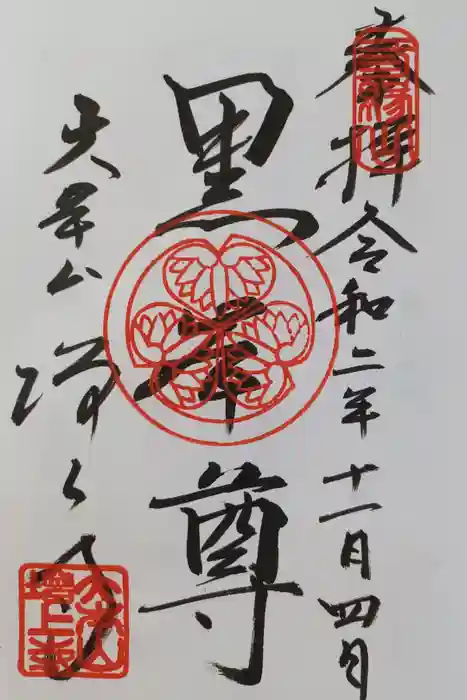 奉拝 令和二年 十一月四日
黒本尊
大本山 増上寺
大本山
増上寺